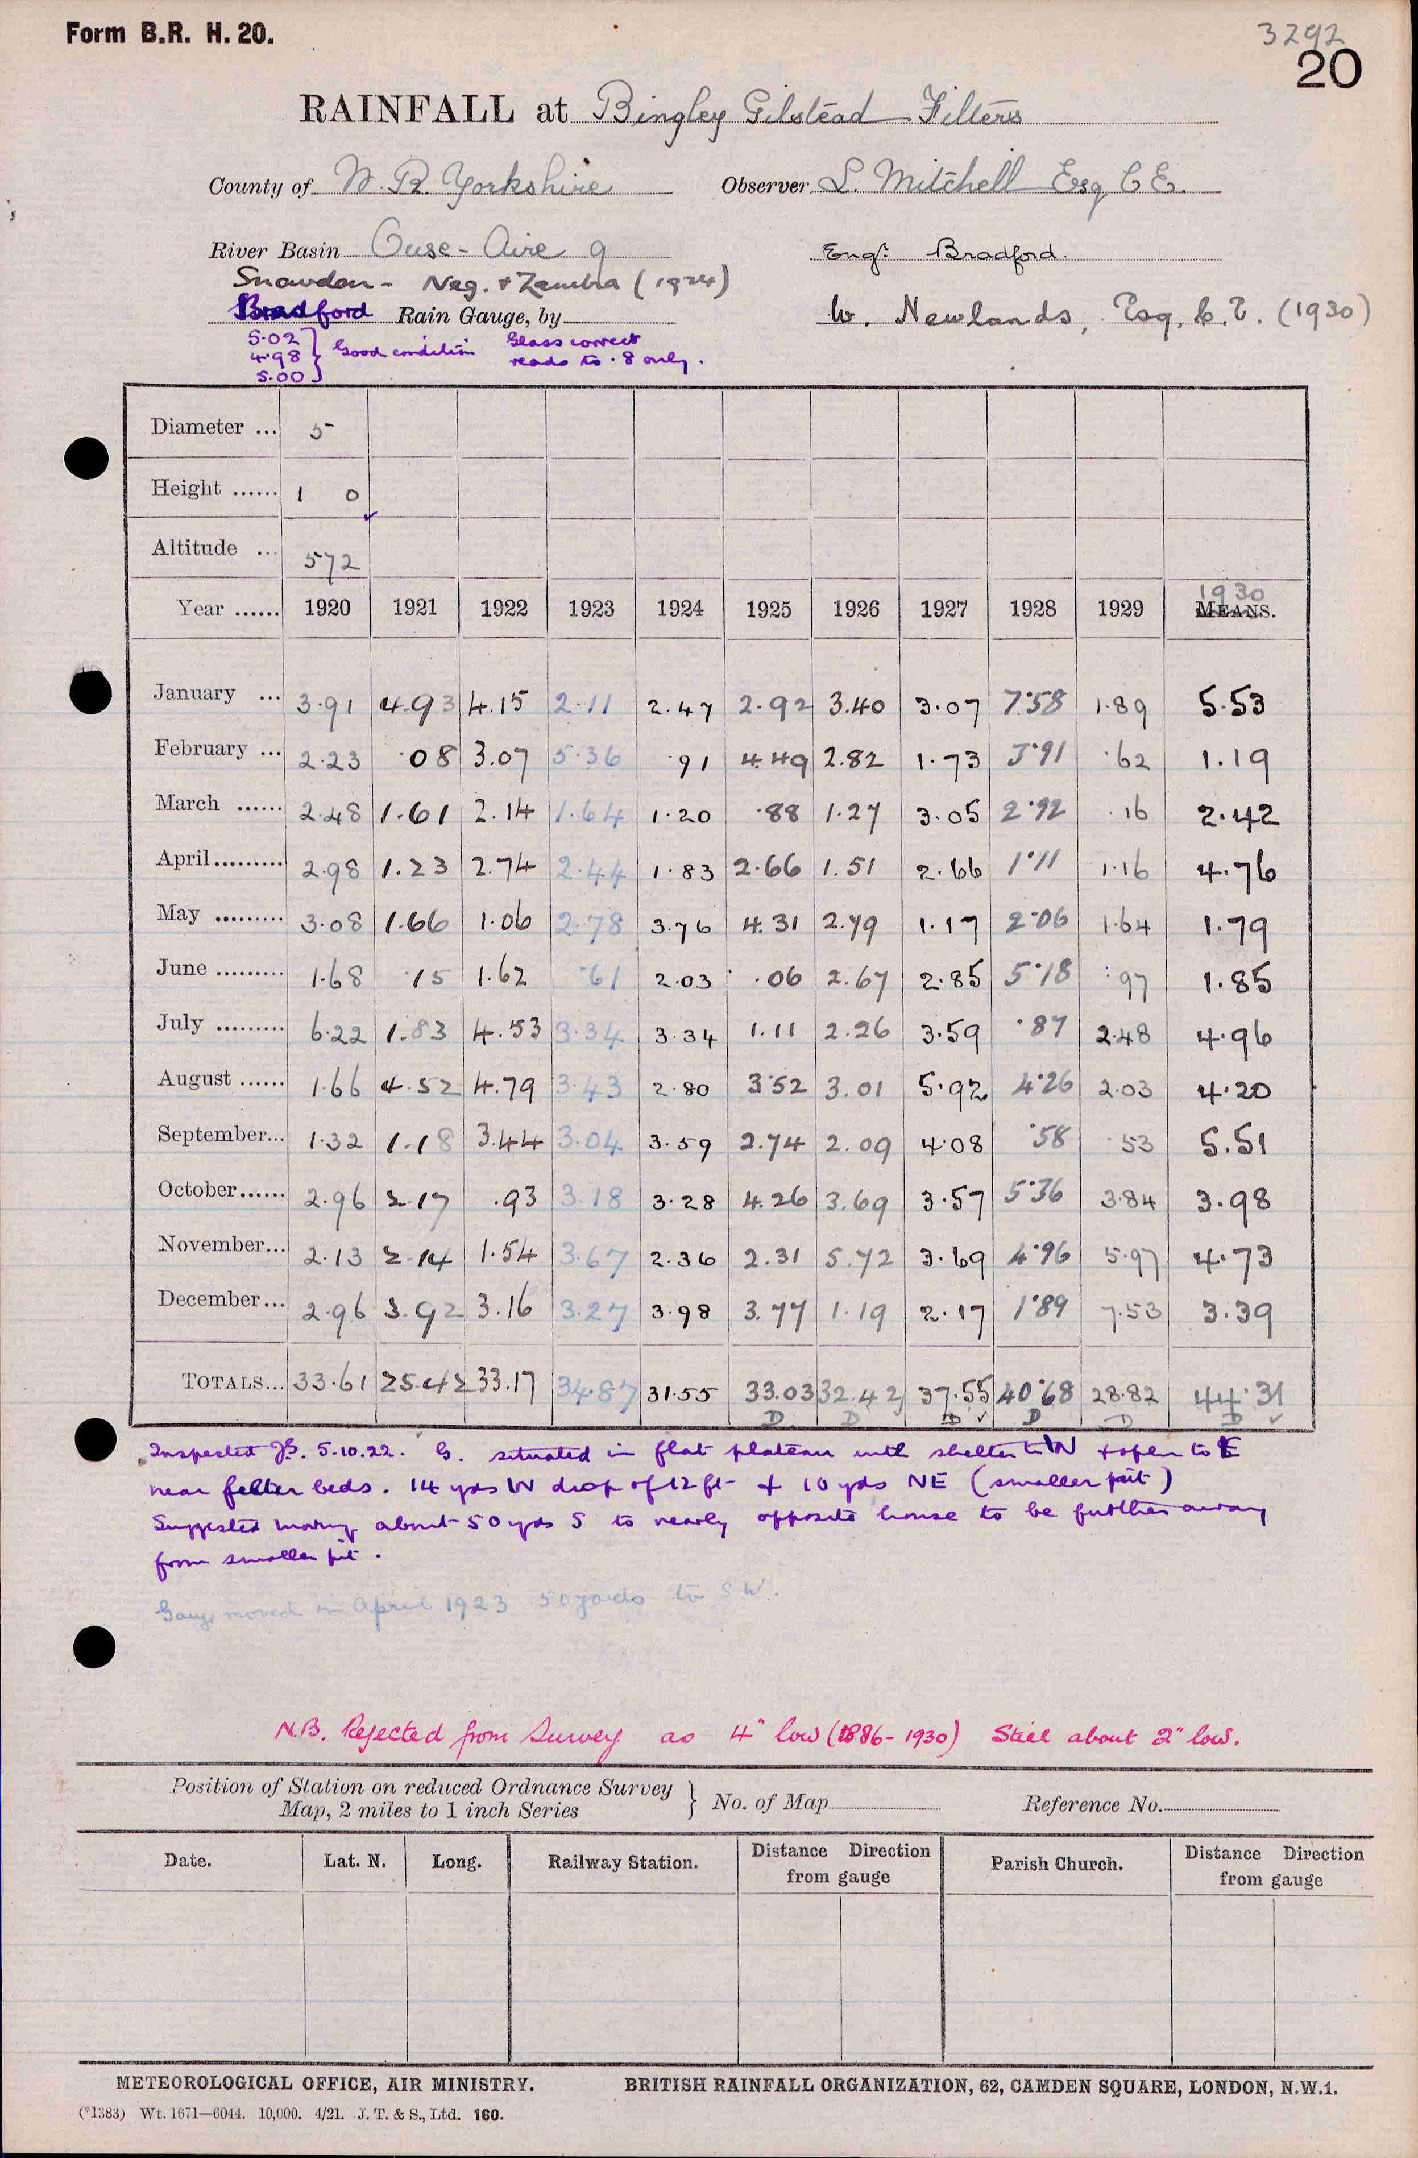 Form B.R. H. 20.
3292
20
RAINFALL at Bingley Gilstead Filters
County of W. R. Yorkshire Observer L. Mitchell Esq C E.
River Basin Ouse - Aire 9 Engr. Bradford.
Snowdon - Neg. & Zambra (1924)
Bradford Rain Gauge, by W. Newlands, Esq. C. E. (1930)
5.02
4.98 } Good condition Glass correct
5.00 reads to .8 only.
Diameter ... 5
Height ...... 1 0
Altitude ... 572
1930
Year ...... 1920 1921 1922 1923 1924 1925 1926 1927 1928 1929 MEANS.
January ... 3.91 4.93 4.15 2.11 2.47 2.92 3.40 3.07 7.58 1.89 5.53
February ... 2.23 .08 3.07 5.36 .91 4.49 2.82 1.73 3.91 .62 1.19
March ...... 2.48 1.61 2.14 1.64 1.20 .88 1.27 3.05 2.92 .16 2.42
April......... 2.98 1.23 2.74 2.44 1.83 2.66 1.51 2.66 1.11 1.16 4.76
May ......... 3.08 1.66 1.06 2.78 3.76 4.31 2.79 1.17 2.06 1.64 1.79
June ......... 1.68 .15 1.62 .61 2.03 .06 2.67 2.85 5.18 .97 1.85
July ......... 6.22 1.83 4.53 3.34 3.34 1.11 2.26 3.59 .87 2.48 4.96
August ...... 1.66 4.52 4.79 3.43 2.80 3.52 3.01 5.92 4.26 2.03 4.20
September... 1.32 1.18 3.44 3.04 3.59 2.74 2.09 4.08 .58 .53 5.51
October...... 2.96 2.17 .93 3.18 3.28 4.26 3.69 3.57 5.36 3.84 3.98
November... 2.13 2.14 1.54 3.67 2.36 2.31 5.72 3.69 4.96 5.97 4.73
December... 2.96 3.92 3.16 3.27 3.98 3.77 1.19 2.17 1.89 7.53 3.39
TOTALS... 33.61 25.42 33.17 34.87 31.55 33.03 32.42 37.55 40.68 28.82 44.31
D D D ✓ D D D ✓
Inspected 5.10.22. G. situated in flat plateau with shelter to W & open to E
near filter beds. 14 yds W drop of 12 ft & 10 yds NE (smaller pit)
Suggested moving about 50 yds S to nearly opposite house to be further away
from smaller pit.
Gauge moved in April 1923 50 yards to S W.
N.B. Rejected from Survey as 4" low (1886 - 1930) Still about 2" low.
Position of Station on reduced Ordnance Survey
Map, 2 miles to 1 inch Series } No. of Map Reference No.
Date. Lat. N. Long. Railway Station. Distance Direction from gauge Parish Church. Distance Direction from gauge
METEOROLOGICAL OFFICE, AIR MINISTRY. BRITISH RAINFALL ORGANIZATION, 62, CAMDEN SQUARE, LONDON, N.W.1.
(*1383) Wt. 1671—6044. 10,000. 4/21. J. T. & S., Ltd. 160.